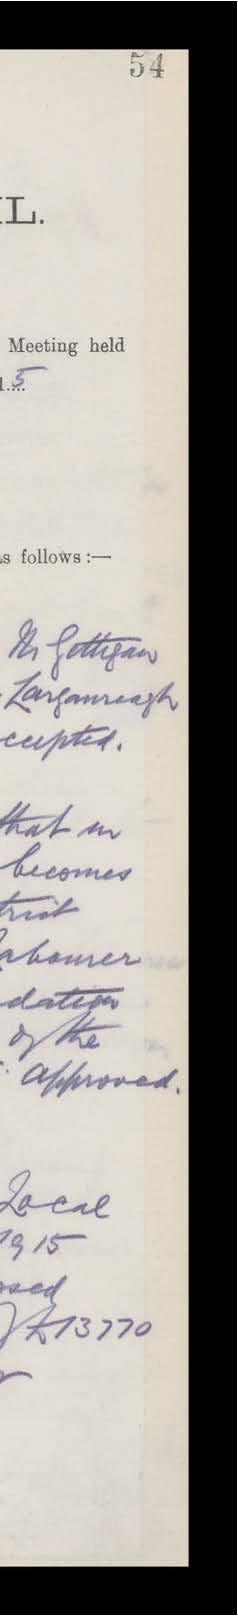 54
IL.
Meeting held
1....5
as follows :—
Mr Gottigan
Larganreagh
ccepted.
that in
becomes
trict
Labourer
dation
of the
approved.
Local
1915
osed
of £13770